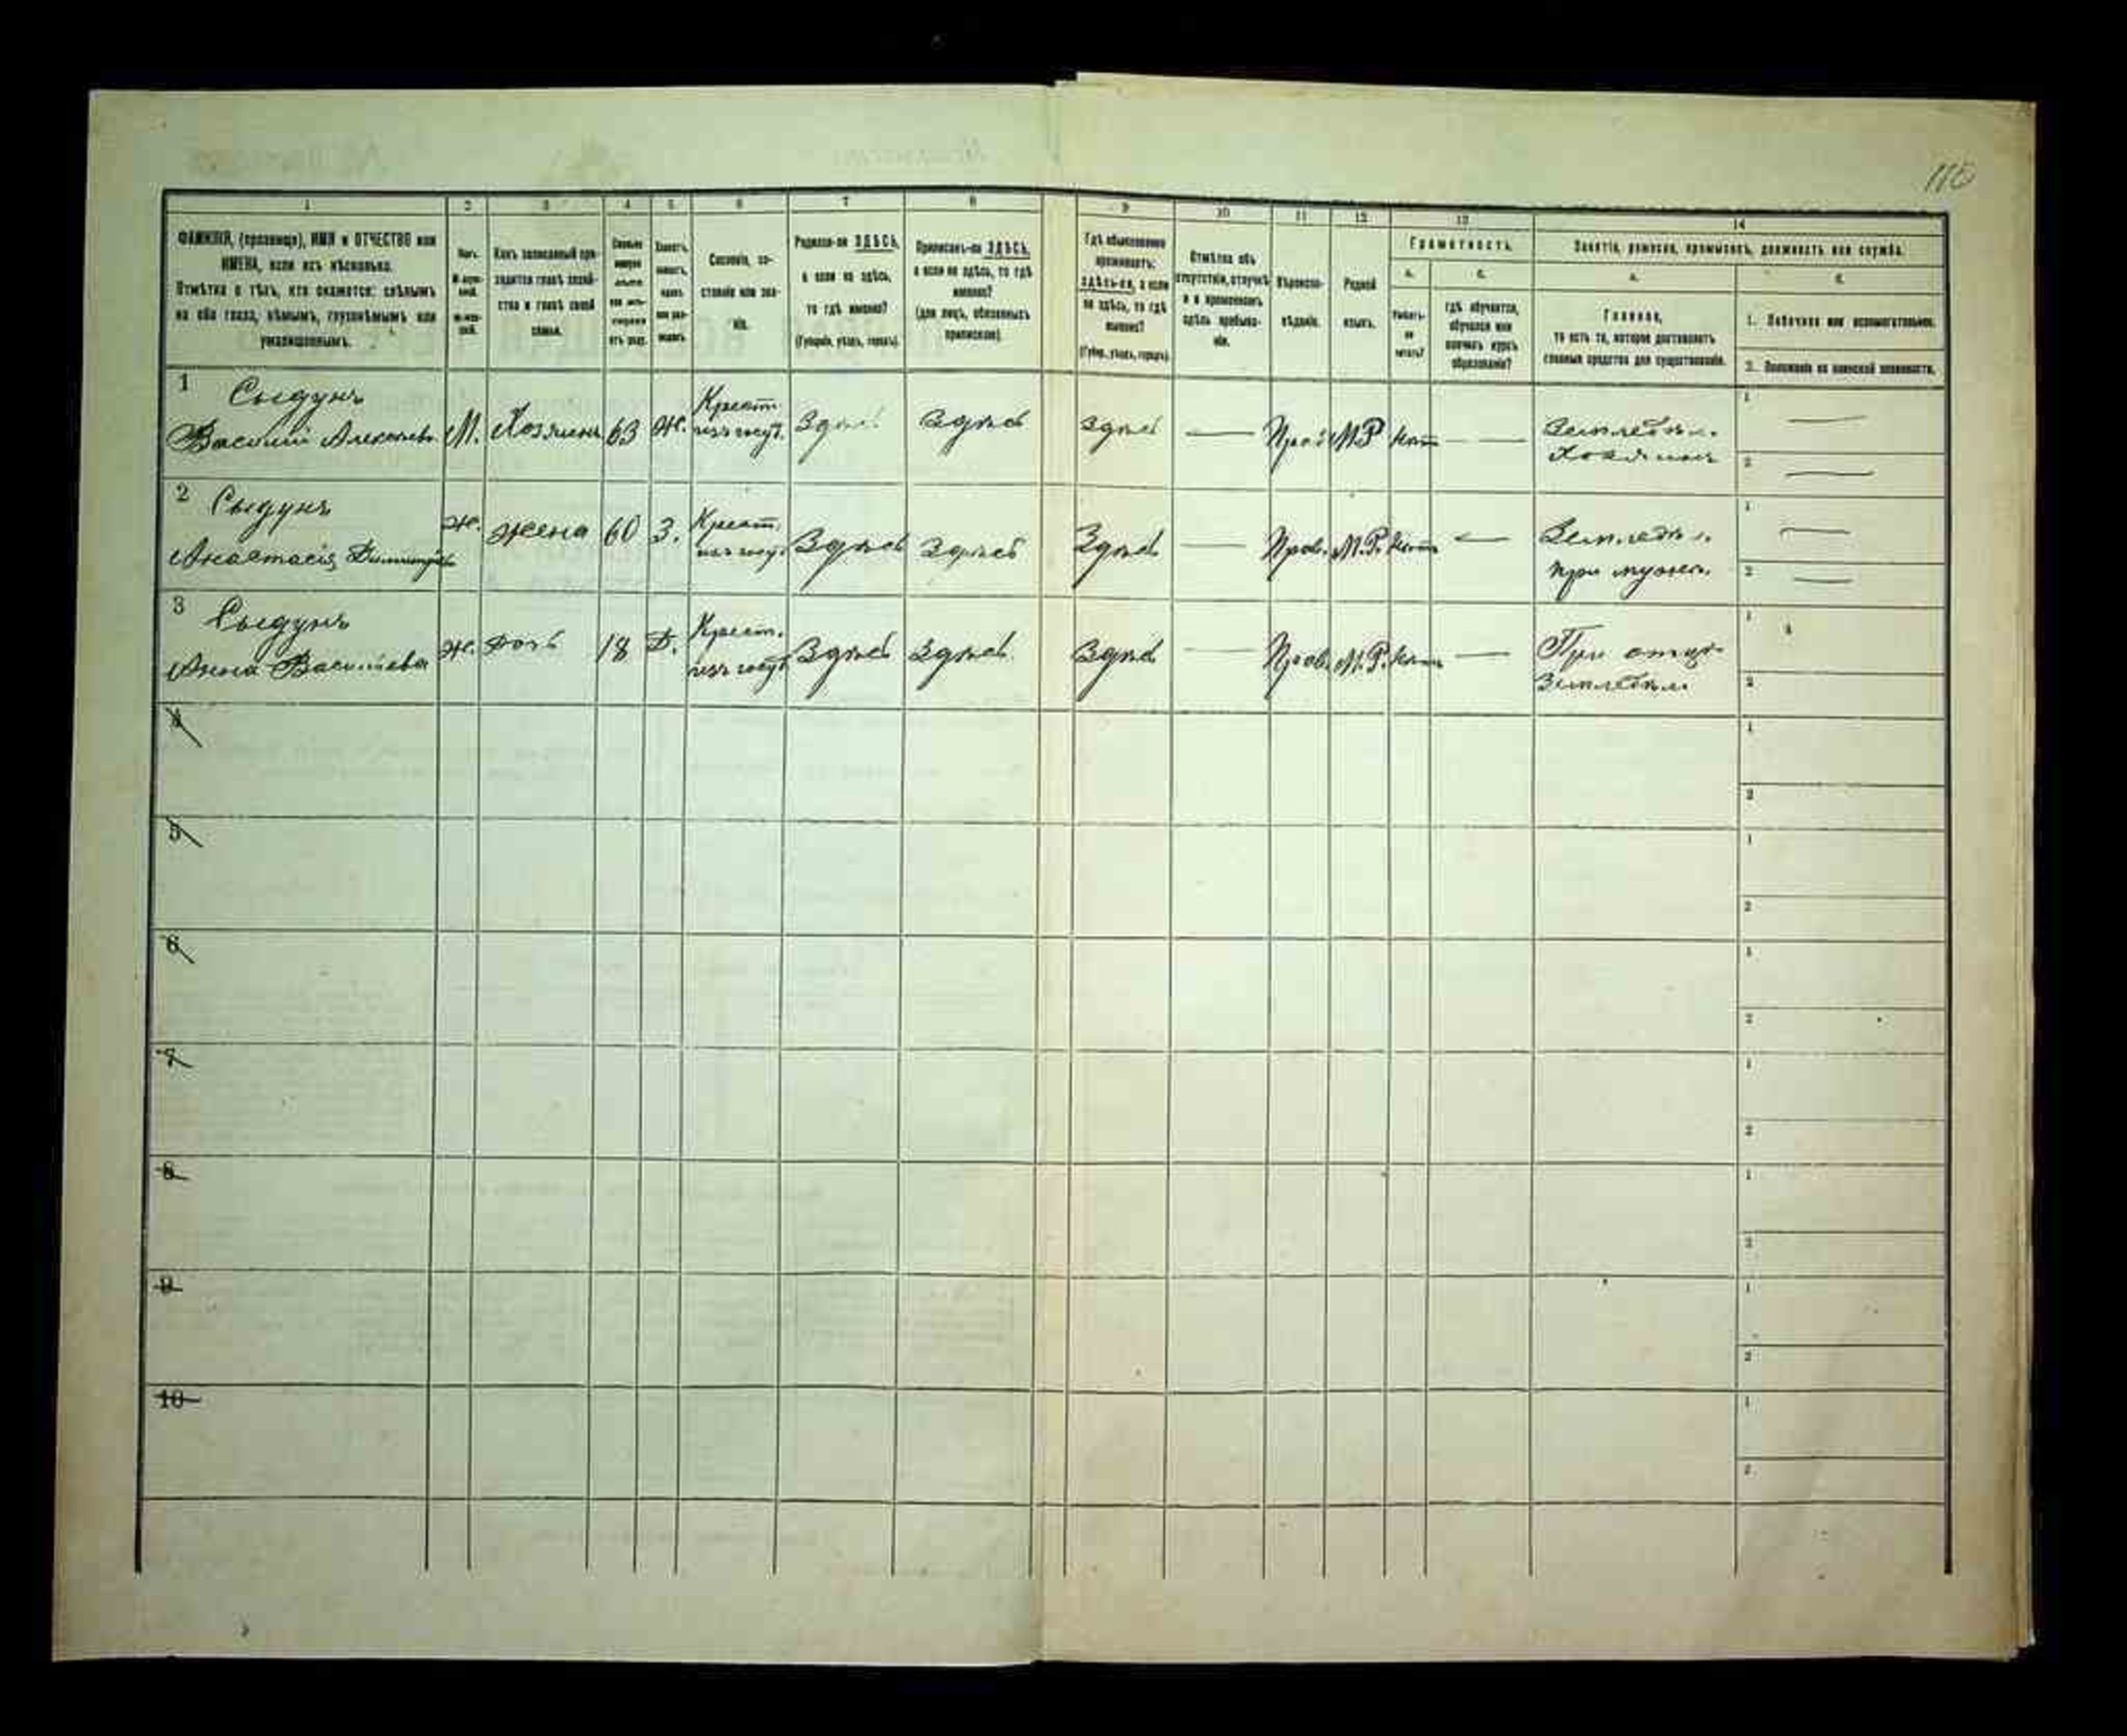 110
1 2 3 4 5 6 7 8 9 10 11 12 13 14
ФАМИЛІЯ, (прозвище), ИМЯ и ОТЧЕСТВО или
ИМЕНА, если ихъ нѣсколько.
Отмѣтка о тѣхъ, кто окажется: слѣпымъ
на оба глаза, нѣмымъ, глухонѣмымъ или
умалишеннымъ.
Полъ.
М-муж-
ской.
Ж-жен-
скій.
Какъ записанный при-
ходится главѣ хозяй-
ства и главѣ своей
семьи.
Сколько
минуло
лѣтъ
или мѣ-
сяцевъ
отъ роду.
Холостъ,
женатъ,
вдовъ
или раз-
веденъ.
Сословіе, со-
стояніе или зва-
ніе.
Родился-ли ЗДѢСЬ,
а если не здѣсь,
то гдѣ именно?
(Губернія, уѣздъ, городъ).
Приписанъ-ли ЗДѢСЬ,
а если не здѣсь, то гдѣ
именно?
(для лицъ, обязанныхъ
припискою).
Гдѣ обыкновенно
проживаетъ:
здѣсь-ли, а если
не здѣсь, то гдѣ
именно?
(Губер., уѣздъ, городъ).
Отмѣтка объ
отсутствіи, отлучкѣ
и о временномъ
здѣсь пребыва-
ніи.
Вѣроиспо-
вѣданіе.
Родной
языкъ.
Грамотность.
а. б.
Умѣетъ-
ли
читать?
гдѣ обучается,
обучался или
кончилъ курсъ
образованія?
Занятіе, ремесло, промыселъ, должность или служба.
а. б.
Главное,
то есть то, которое доставляетъ
главныя средства для существованія.
1. Побочное или вспомогательное.
2. Положеніе по воинской повинности.
1 Сыдунъ М. Хозяинъ 63 Ж. Крест. Здѣсь Здѣсь Здѣсь — М.Р — — 1 —
Василій Алексѣевъ Хозяинъ 2 —
2 Сыдунъ Ж. жена 60 З. Крест. Здѣсь Здѣсь Здѣсь — Прав. М.Р. — 1 —
Анастасія при мужѣ 2 —
3 Сыдунъ Ж. дочь 18 Д. Крест. Здѣсь Здѣсь Здѣсь — Прав. М.Р. — При отцѣ 1
Анна Васильева 2
4 1
2
5 1
2
6 1
2
7 1
2
8 1
2
9 1
2
10 1
2